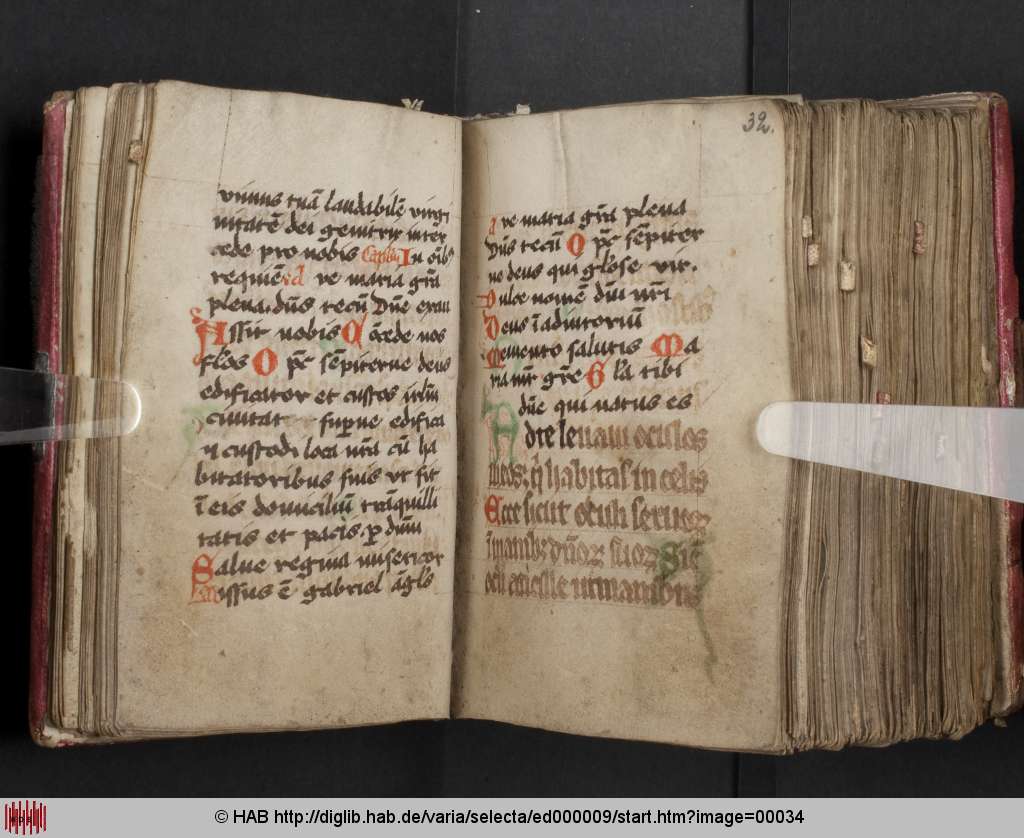 virtus tuā laudabilē virgi
nitatē dei genitrix inter
cede pro nobis Capłm In oīb9
requiē A ve maria grā
plena. dn̄s tecū Dn̄e exau
Assit nobis C ōcede nos
fłos O p̄c sēpiterne deus
edificator et custos irłm
civitat supne edifica
custodi loca cū ha
bitatoribus suis vt sit
ī eis domiciliū trāquilli
tatis et pacis. p dm̄
Salue regina misericor
Missus ē gabriel āgłs
32.
A ve maria grā plena
Dn̄s tecū O p̄c sēpiter
ne deus qui głose vir.
Dulce nomē dn̄i nr̄i
Deus ī adiutoriū
Memento salutis Ma
ria mr̄ grē G ła tibi
dn̄e qui natus es
Ad te leuaui oculos
meos: q̄ habitas in celis
Ecce sicut oculi seruoꝝ
ī manib9 dn̄oꝝ suoꝝ Sic̄